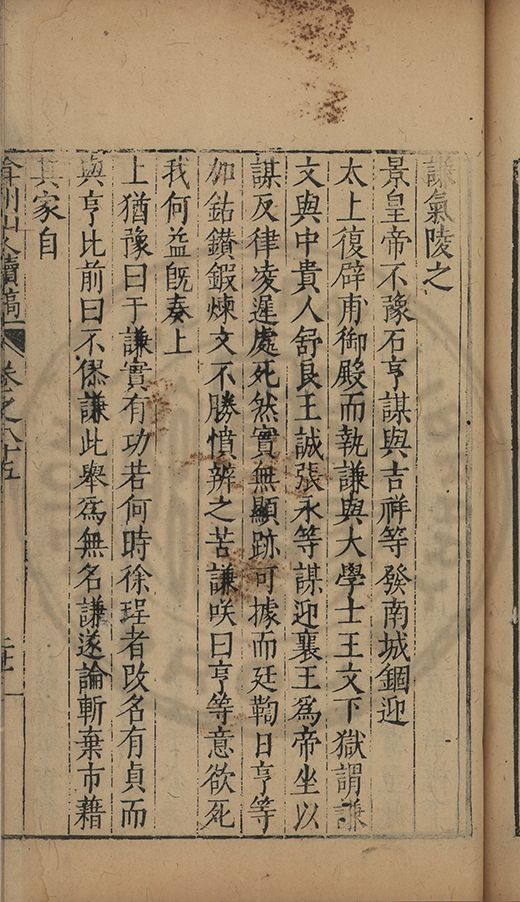 謙氣陵之
景皇帝不豫石亨謀與吉祥等發南城錮迎
太上復辟甫御殿而執謙與大學士王文下獄謂謙
文與中貴人舒良王誠張永等謀迎襄王為帝坐以
謀反律凌遲處死然實無顯跡可據而廷鞫日亨等
加鈷鑽鍜煉文不勝憤辨之苦謙咲曰亨等意欲死
我何益旣奏上
上猶豫曰于謙實有功若何時徐珵者改名有貞而
與亨比前曰不僇謙此舉為無名謙遂論斬棄市藉
其家自
弇州山人續稿 卷之八十五